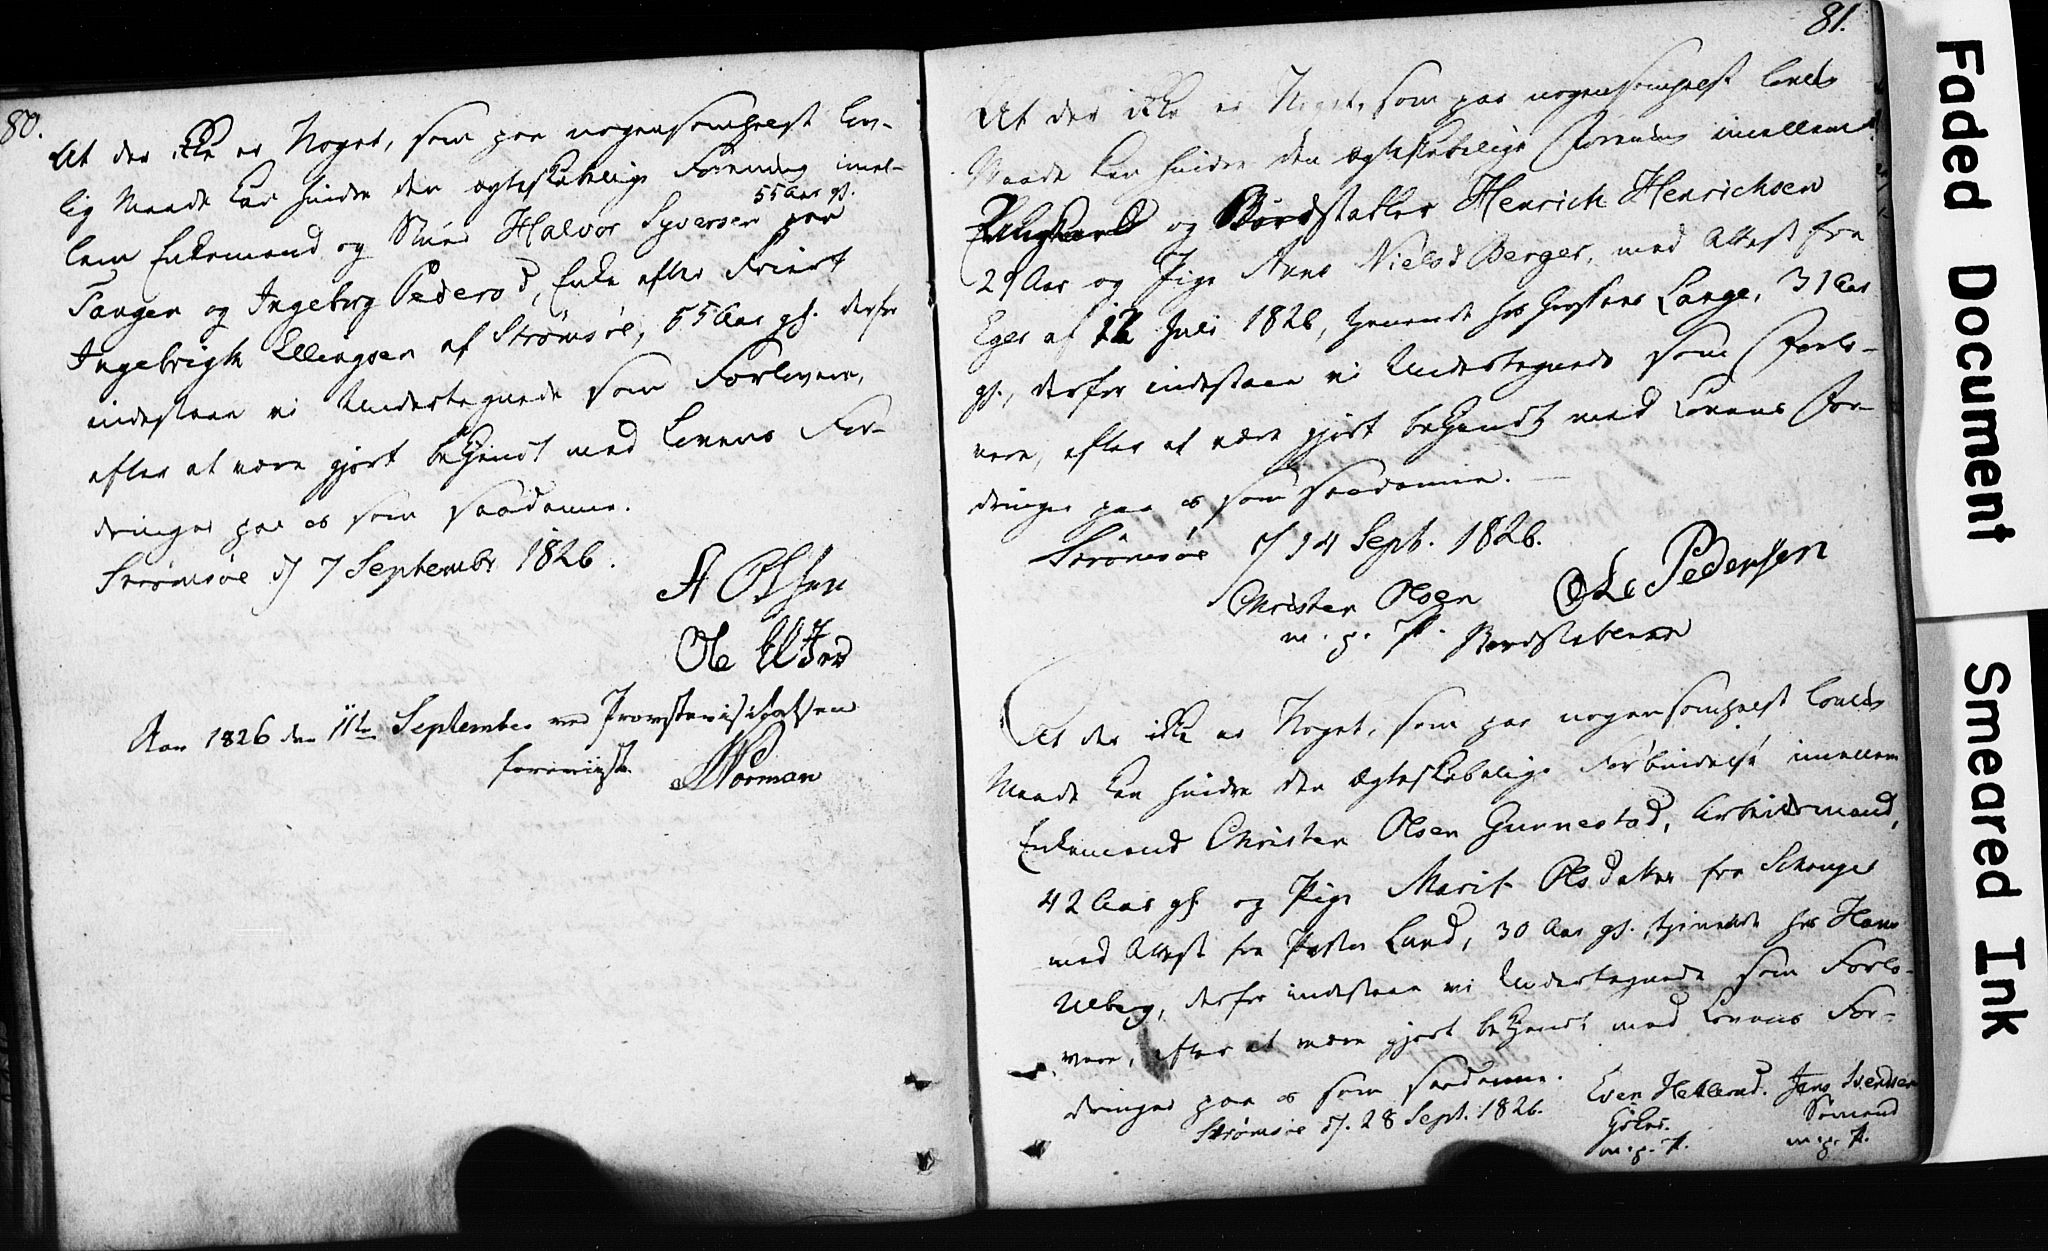 80.
At der ikke er Noget, som paa nogensomhelst lov-
lig Maade kan hindre den ægteskabelige Forening imel-
55 Aar gl.
lem Enkemand og Halvor Syversen paa
Tangen og Ingeborg Pedersd, Enke efter
Ingebrigth Ellingsen af Strømsøe, 55 Aar gl. derfor
indestaae vi Undertegnede som Forlovere,
efter at være gjort bekjendt med Lovens For-
dringer paa os som saadanne.
Strømsøe d 7 September 1826.
A Olsen
Ole
Aar 1826 den 11te September ved Provstevisitatsen
foreviist. Norman
81.
At der ikke er Noget, som paa nogensomhelst lovlig
Maade kan hindre den ægteskabelige Forening imellem
Ungkarl og Bordstabler Henrich Henrichsen
29 Aar og Pige Anne Nielsd Berger, med Attest fra
Eger af 12 Juli 1826, tjenende hos Lange, 31 Aar
gl., derfor indestaae vi Undertegnede som Forlo-
vere, efter at være gjort bekjendt med Lovens For-
dringer paa os som saadanne.
Strømsøe d 14 Sept. 1826.
Christen Olsen Ole Pedersen
m. p. P. Bordstablere
At der ikke er Noget, som paa nogensomhelst lovlig
Maade kan hindre den ægteskabelige Forbindelse imellem
Enkemand Christen Olsen Gunnestad, Arbeidsmand,
42 Aar gl og Pige Marit Olsdatter fra
med Attest fra Pastor Lund, 30 Aar gl. tjenende hos Hans
Ulberg, derfor indestaae vi Undertegnede som Forlo-
vere, efter at være gjort bekjendt med Lovens For-
dringer paa os som saadanne.
Strømsøe d. 28 Sept. 1826.
Even Hellerud. Jens Svendsen
Sømand
m. p. P. m. p. P.
Faded Document
Smeared Ink